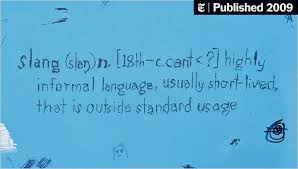 T | Published 2009
slang (slaŋ) n. [18th-c. cant < ?] highly
informal language, usually short-lived,
that is outside standard usage